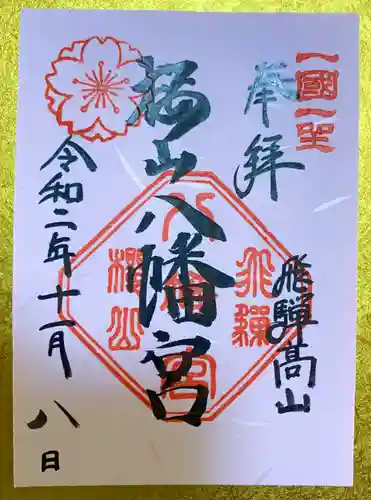 奉拝
飛騨髙山
櫻山八幡宮
飛騨
八幡宮
櫻山
令和二年十一月八日